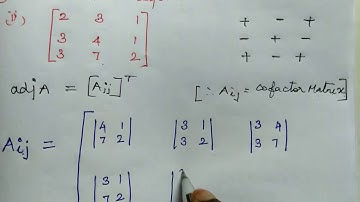 ii) [ 2 3 1
3 4 1
3 7 2 ]
+ - +
- + -
+ - +
adj A = [Aij]ᵀ [∴ Aij = Cofactor Matrix]
Aij = [ |4 1| |3 1| |3 4|
|7 2| |3 2| |3 7|
|3 1|
|7 2|